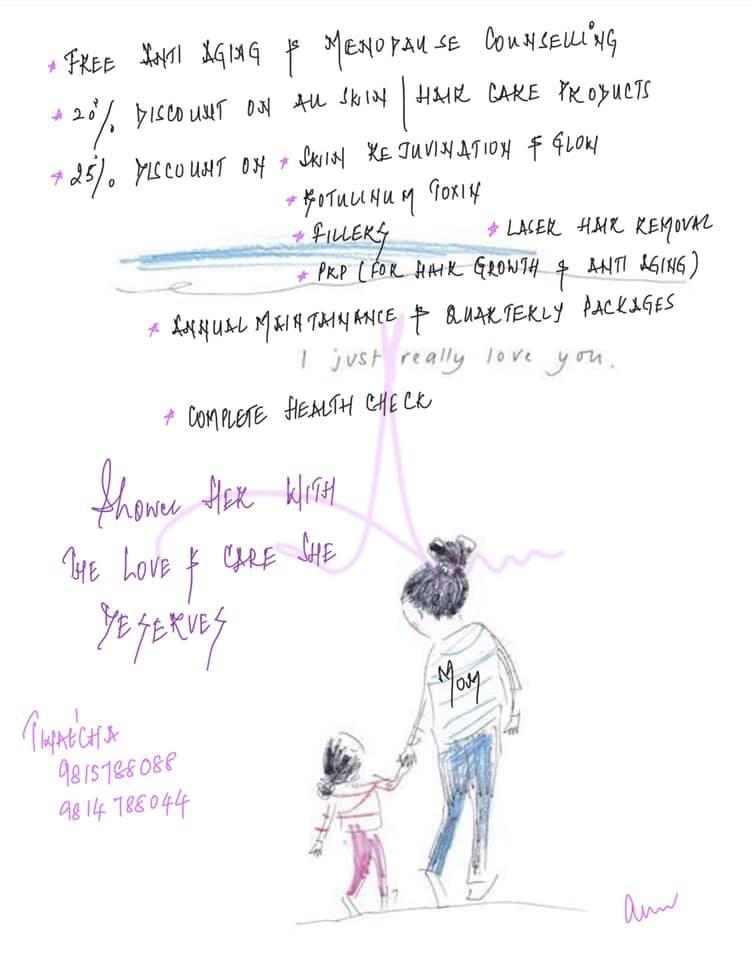 * FREE ANTI AGING & MENOPAUSE COUNSELLING
* 20% DISCOUNT ON ALL SKIN | HAIR CARE PRODUCTS
* 25% DISCOUNT ON * SKIN REJUVINATION & GLOW
* BOTULINUM TOXIN
* FILLERS * LASER HAIR REMOVAL
* PRP (FOR HAIR GROWTH & ANTI AGING)
* ANNUAL MAINTAINANCE & QUARTERLY PACKAGES
I just really love you.
* COMPLETE HEALTH CHECK
Shower HER WITH
THE LOVE & CARE SHE
DESERVES
Mom
TWATCHA
9815788088
9814788044